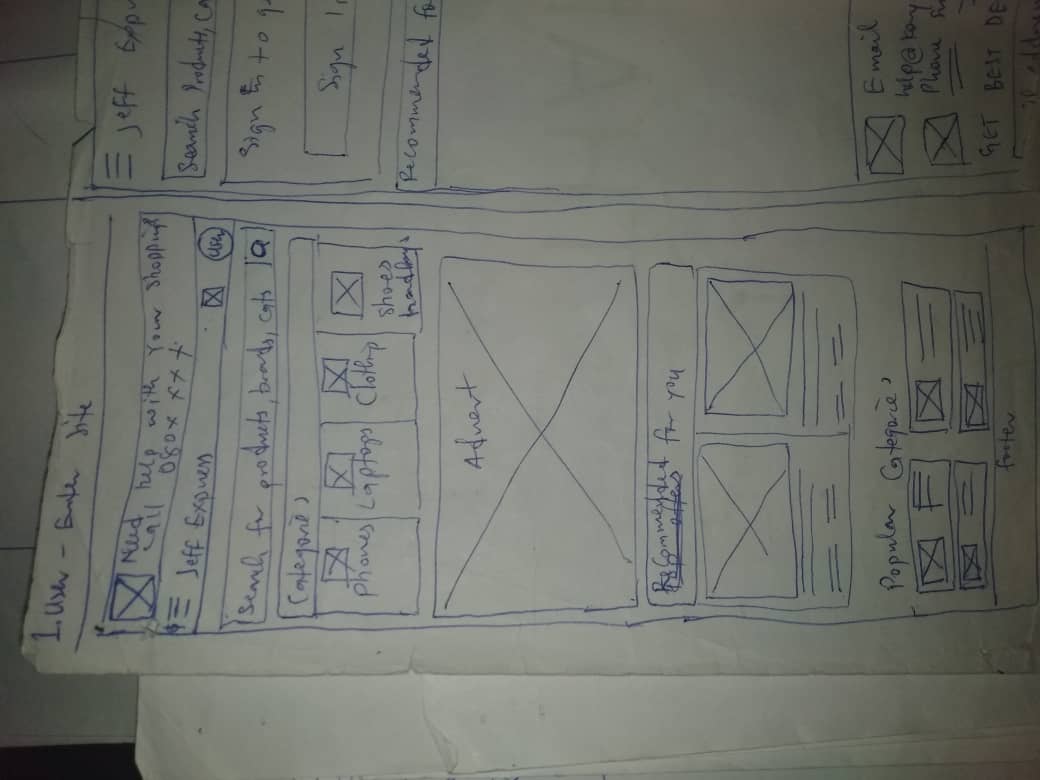 1. User - Enter Site
Need help with Your Shopping
Call 080x xx x
Jeff Express
User
Search for products, brands, cats
Q
Categories
phones
Laptops
Clothing
Shoes
handbags
Advert
Recommended for you
Popular Categories
footer
Jeff Expr
Search Products, Ca
Sign In to g
Sign In
Recommended fo
Email
Phone
GET BEST DE